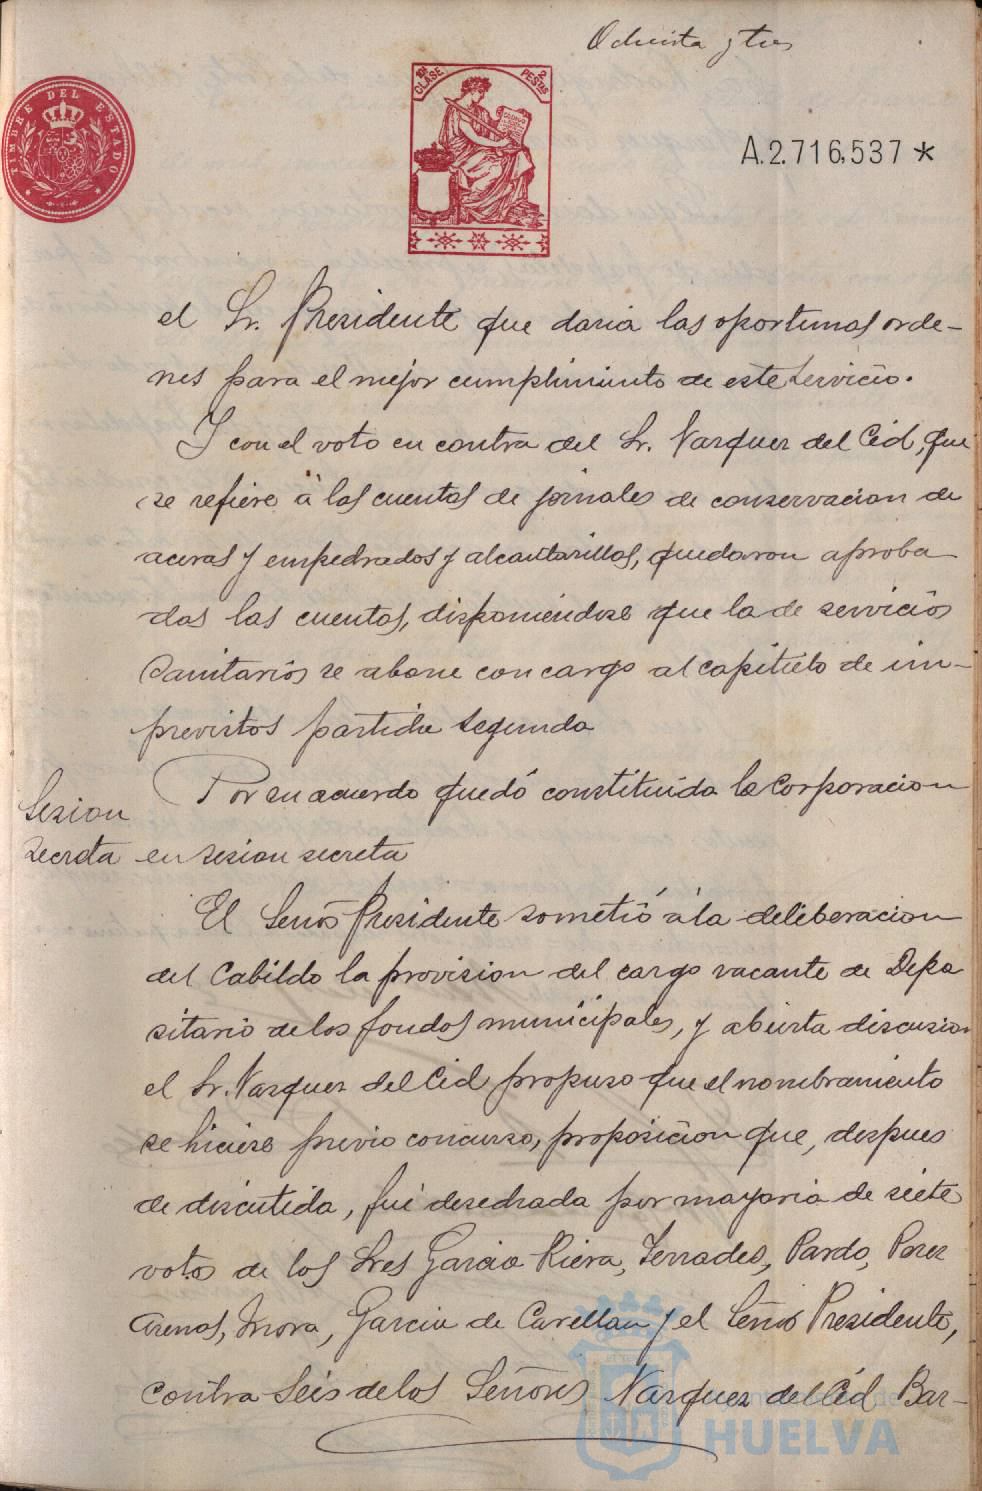 Ochenta y tres
TIMBRE DEL ESTADO
10ª CLASE
2 PESTAS
A.2.716,537 *
el Sr. Presidente que daria las oportunas orde-
nes para el mejor cumplimiento de este servicio.
Y con el voto en contra del Sr. Vazquez del Cid, que
se refiere á las cuentas de jornales de conservacion de
aceras y empedrados y alcantarillas, quedaron aproba
das las cuentas, disponiéndose que la de servicios
Sanitarios se abone con cargo al capitulo de im-
previstos partida segunda
Sesion
secreta
Por su acuerdo quedó constituida la Corporacion
en sesion secreta
El Señor Presidente sometió á la deliberacion
del Cabildo la provision del cargo vacante de Depo
sitario de los fondos municipales, y abierta discusion
el Sr. Vazquez del Cid propuso que el nombramiento
se hiciese previo concurso, proposicion que, despues
de discutida, fué desechada por mayoria de siete
votos de los Sres Garcia Riera, Terrades, Pardo, Perez
Arenas, Mora, Garcia de Carellan y el Señor Presidente,
contra seis de los Señores Vazquez del Cid Bar-
Ayuntamiento de
HUELVA